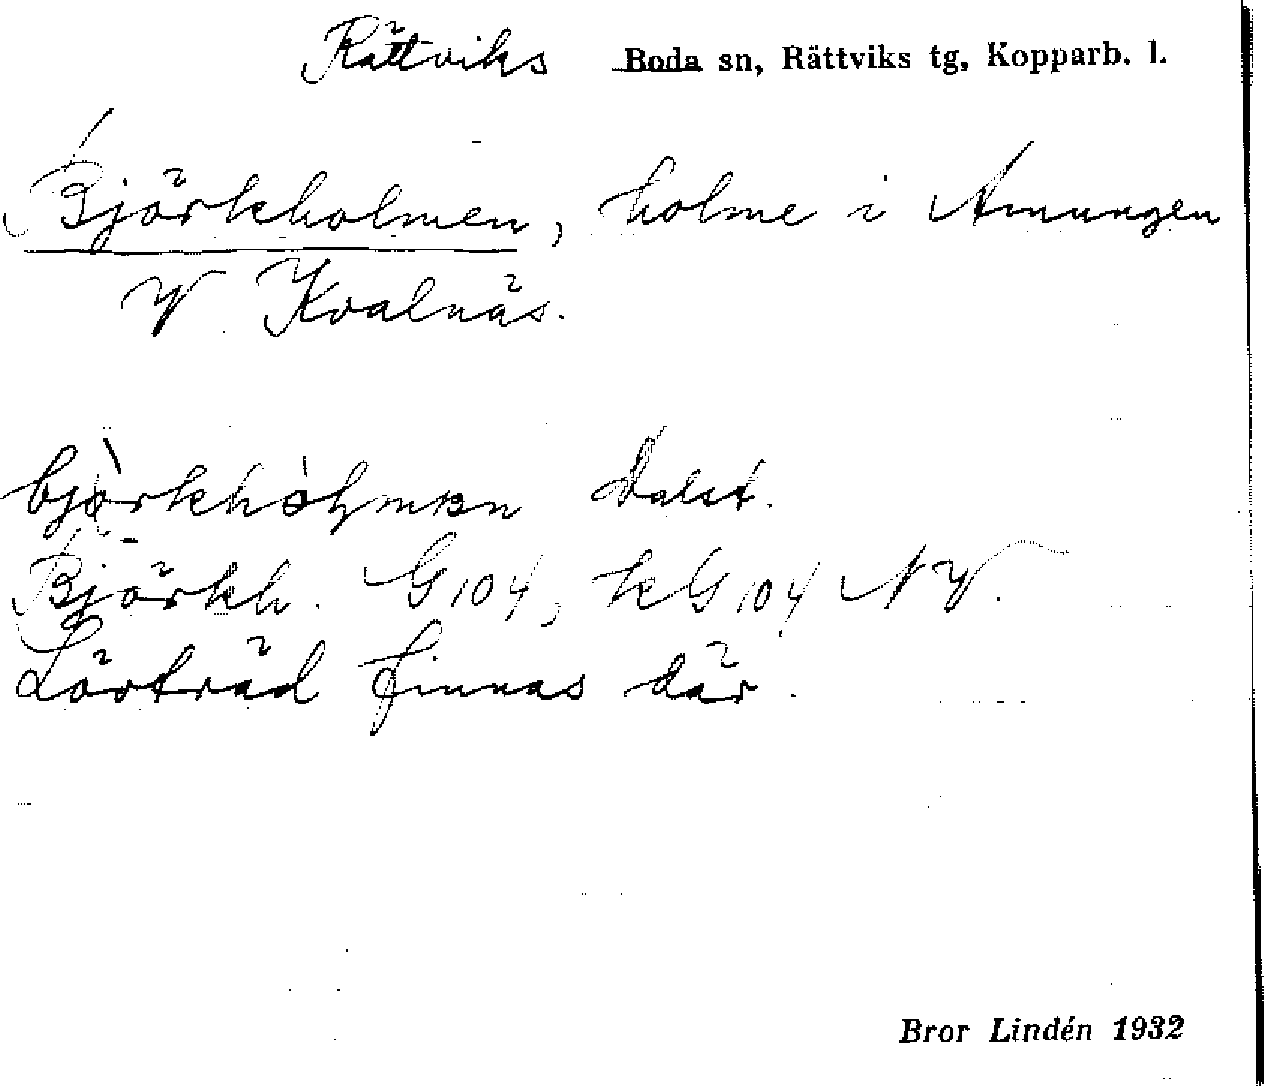 Rättviks Boda sn, Rättviks tg, Kopparb. l.
Björkholmen, holme i Amungen
V Kvalnäs.
Dalst.
Björkh. G 104, kG 104 NV.
Lövträd finnas där.
Bror Lindén 1932